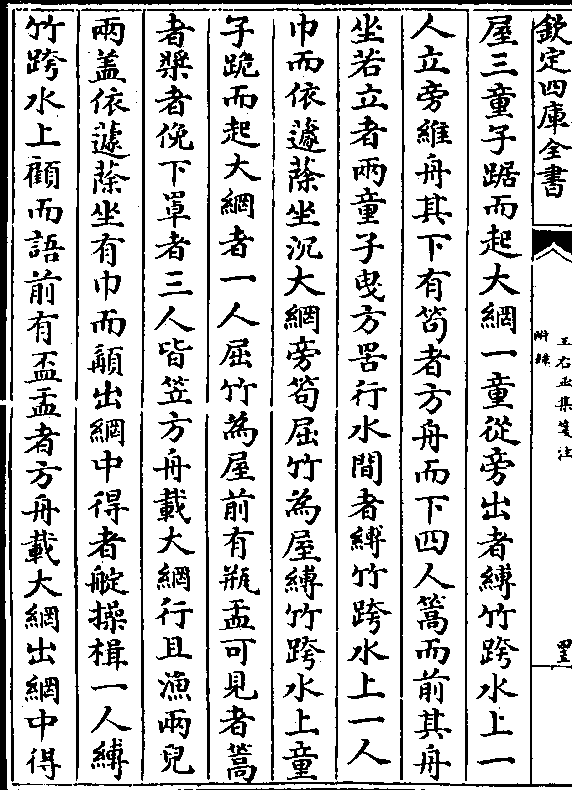 欽定四庫全書
王右丞集箋注
附錄
屋三童子踞而起大網一童從旁出者縛竹跨水上一
人立旁維舟其下有笱者方舟而下四人篙而前其舟
坐若立者兩童子曵方罟行水間者縛竹跨水上一人
巾而依蘧蒢坐沉大網旁笱屈竹為屋縛竹跨水上童
子跪而起大網者一人屈竹為屋前有瓶盂可見者篙
者槳者俛下罩者三人皆笠方舟載大網行且漁兩兒
兩盖依蘧蒢坐有巾而顧出網中得者艇操楫一人縛
竹跨水上顧而語前有盃盂者方舟載大網出網中得